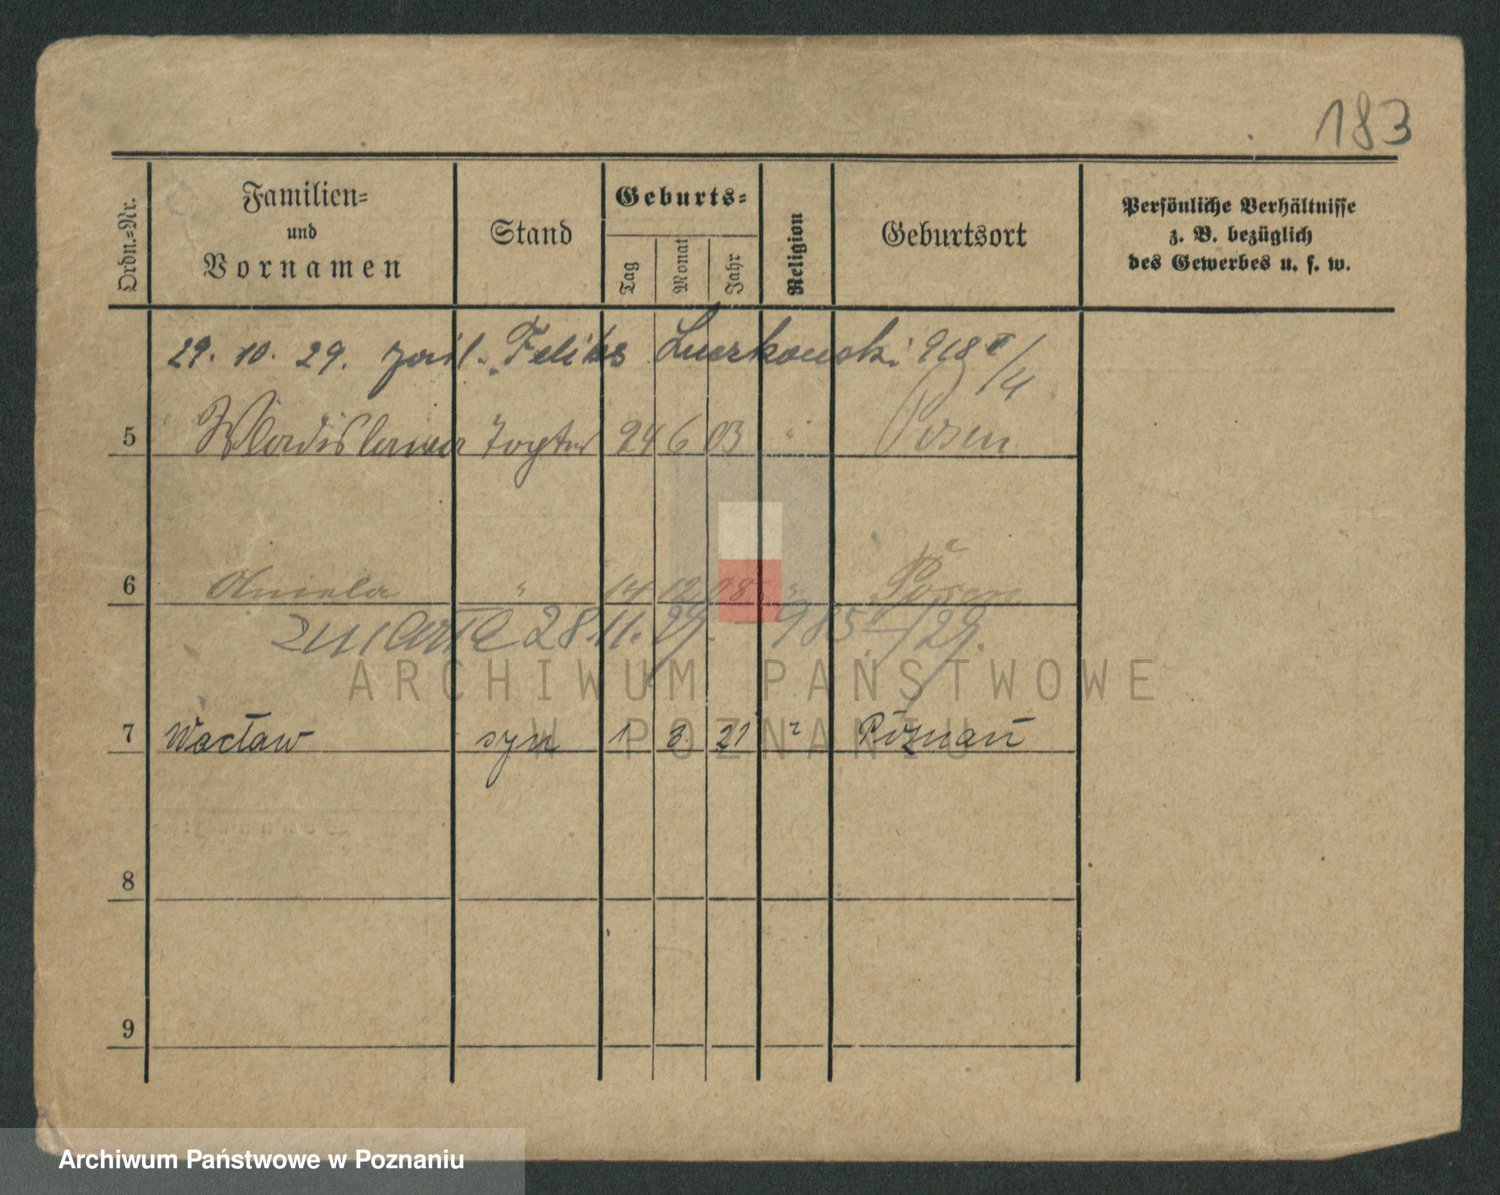 183
Ordn.=Nr.
Familien=
und
Vornamen
Stand
Geburts=
Tag
Monat
Jahr
Religion
Geburtsort
Persönliche Verhältnisse
z. B. bezüglich
des Gewerbes u. s. w.
29. 10. 29. Feliks 918
5 Wladislawa 24 6 03 " Posen
6 Aniela " 14 12 08 " Posen
zmarła 28.11.29. 985 /29.
7 Wacław syn 1 3 21 " Poznań
8
9
ARCHIWUM PAŃSTWOWE
W POZNANIU
Archiwum Państwowe w Poznaniu